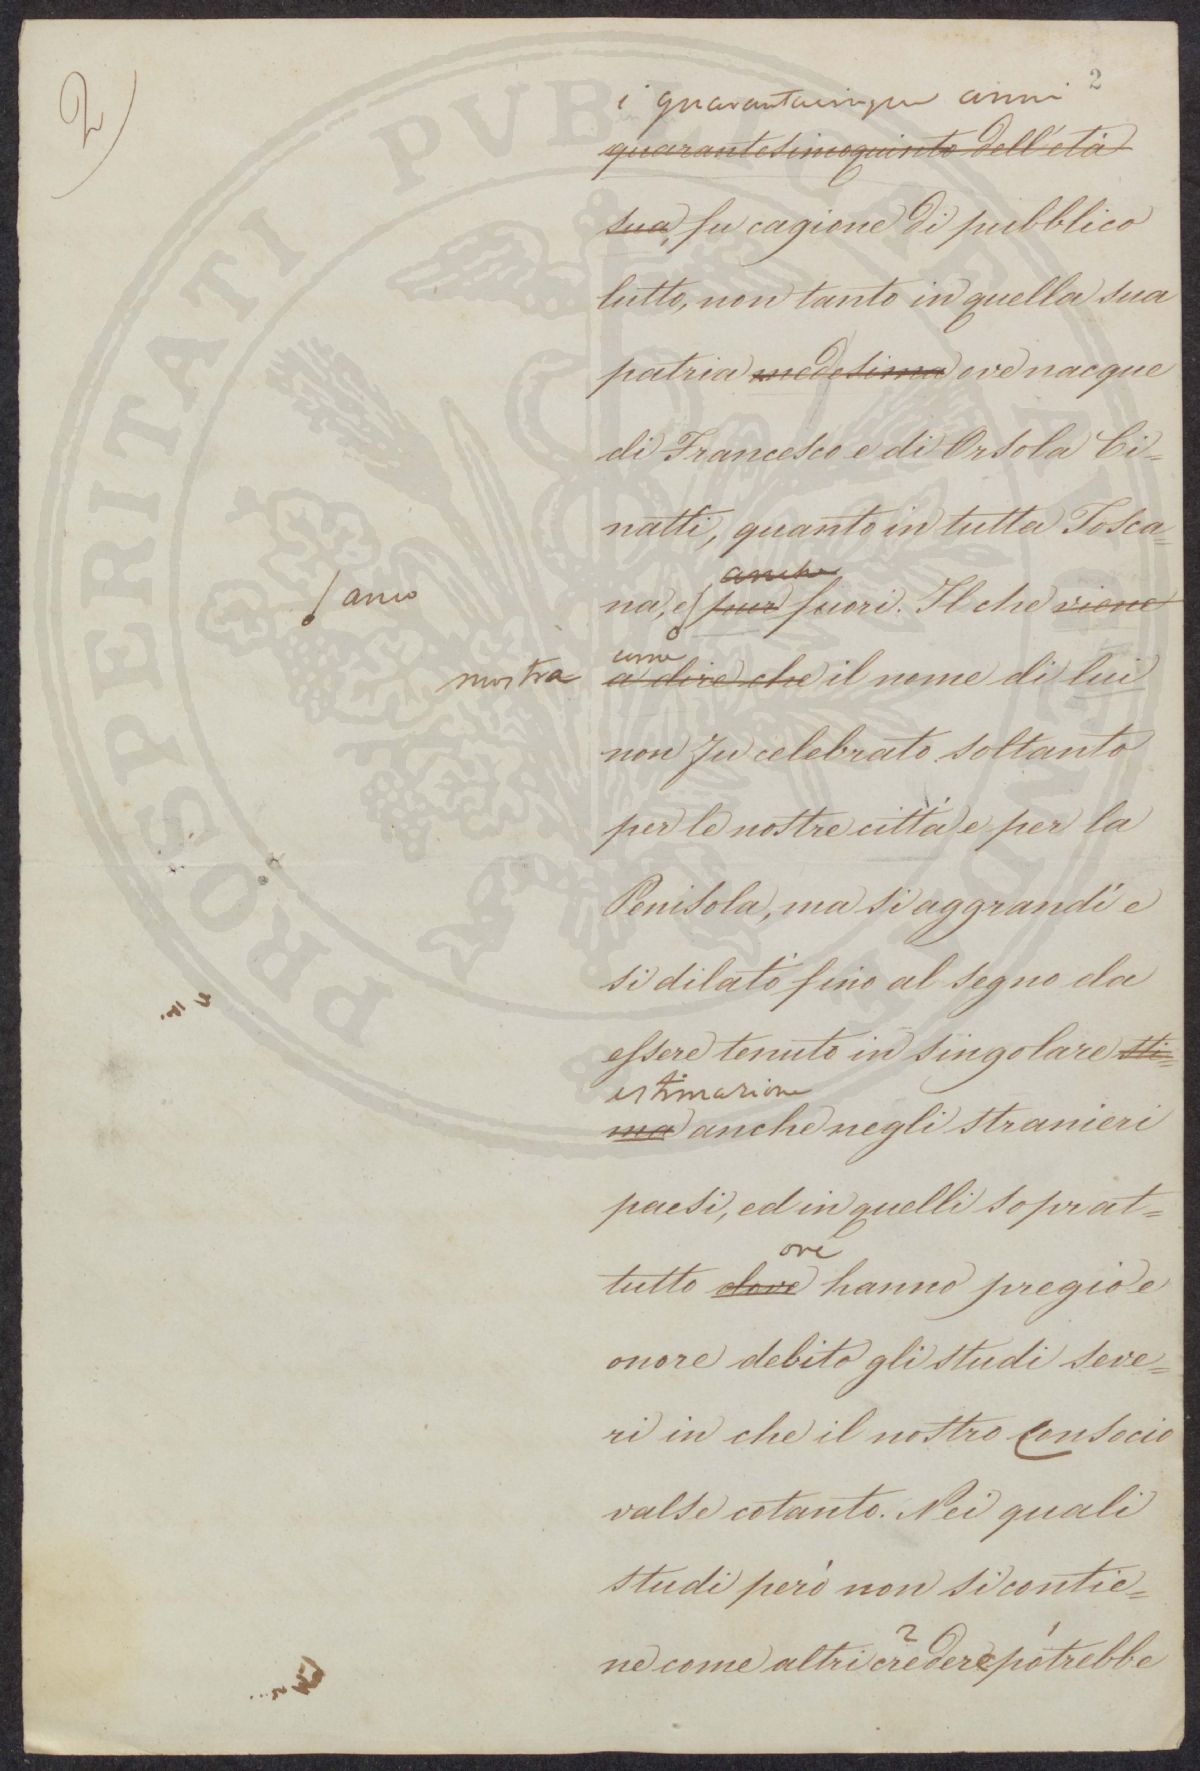 2)
2
i quarantacinque anni
quarantesimoquinto dell'età
sua, fu cagione di pubblico
lutto, non tanto in quella sua
patria medesima ove nacque
di Francesco e di Orsola Ci=
natti, quanto in tutta Tosca=
anche
na, e pur fuori. Il che viene
anco
come
mostra
a dire che il nome di lui
non fu celebrato soltanto
per le nostre città e per la
Penisola, ma si aggrandì e
si dilatò fino al segno da
essere tenuto in singolare sti=
estimazione
ma anche negli stranieri
paesi, ed in quelli soprat=
ove
tutto dove hanno pregio e
onore debito gli studi seve=
ri in che il nostro Consocio
valse cotanto. Nei quali
studi però non si contie=
2 1
ne come altri credere potrebbe
PROSPERITATI PUBLICAE AUGENDAE